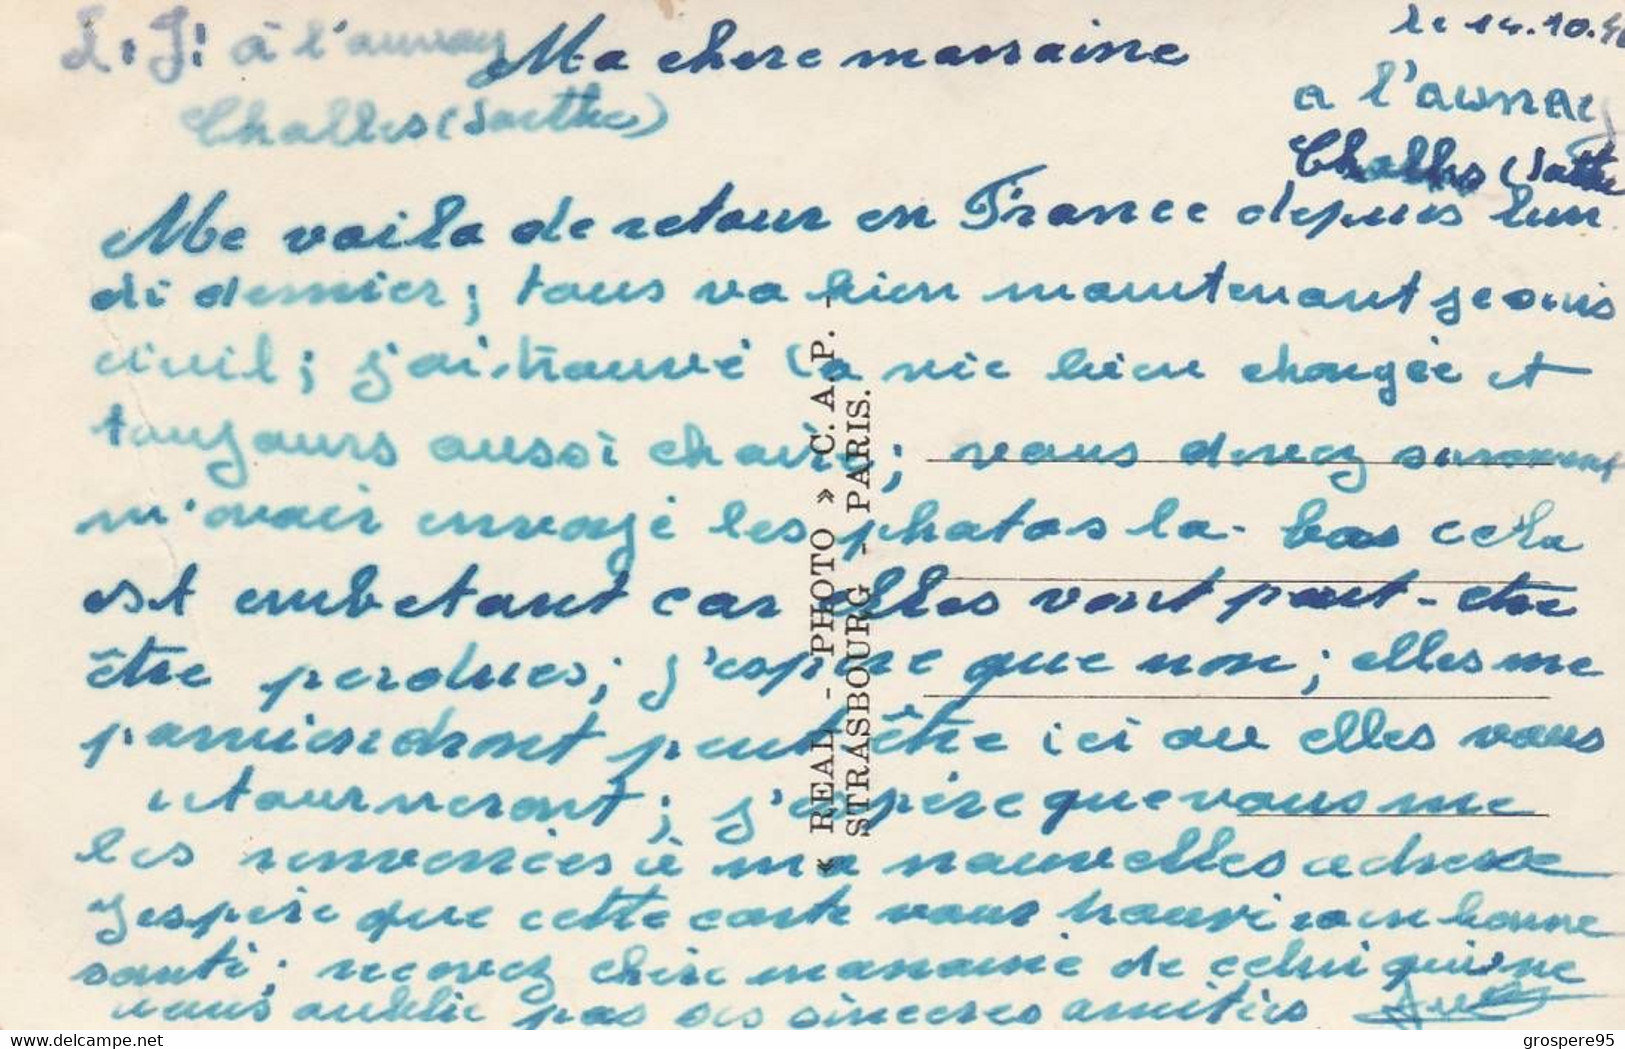 à l'aunay
Ma chere marraine
le 14.10.
a l'aunay
Challes (Sarthe)
Challes (Sarthe
Me voila de retour en France depuis lun
di dernier; tous va bien maintenant je suis
civil; j'ai trouvé la vie bien changée et
toujours aussi chair; vous devez surement
m'avoir envoyé les photos la-bas cela
est embetant car elles vont peut-etre
être perdues; j'espere que non; elles me
parviendront peut être ici ou elles vous
retourneront; j'espère que vous me
les renverrés à ma nouvelles adresse
J'espère que cette carte vous trouvera en bonne
santé; recevez chère marraine de celui qui ne
vous oublie pas ses sinceres amitiés
« REAL - PHOTO » C. A. P. -
STRASBOURG - PARIS.
https://www.delcampe.net
grospere95